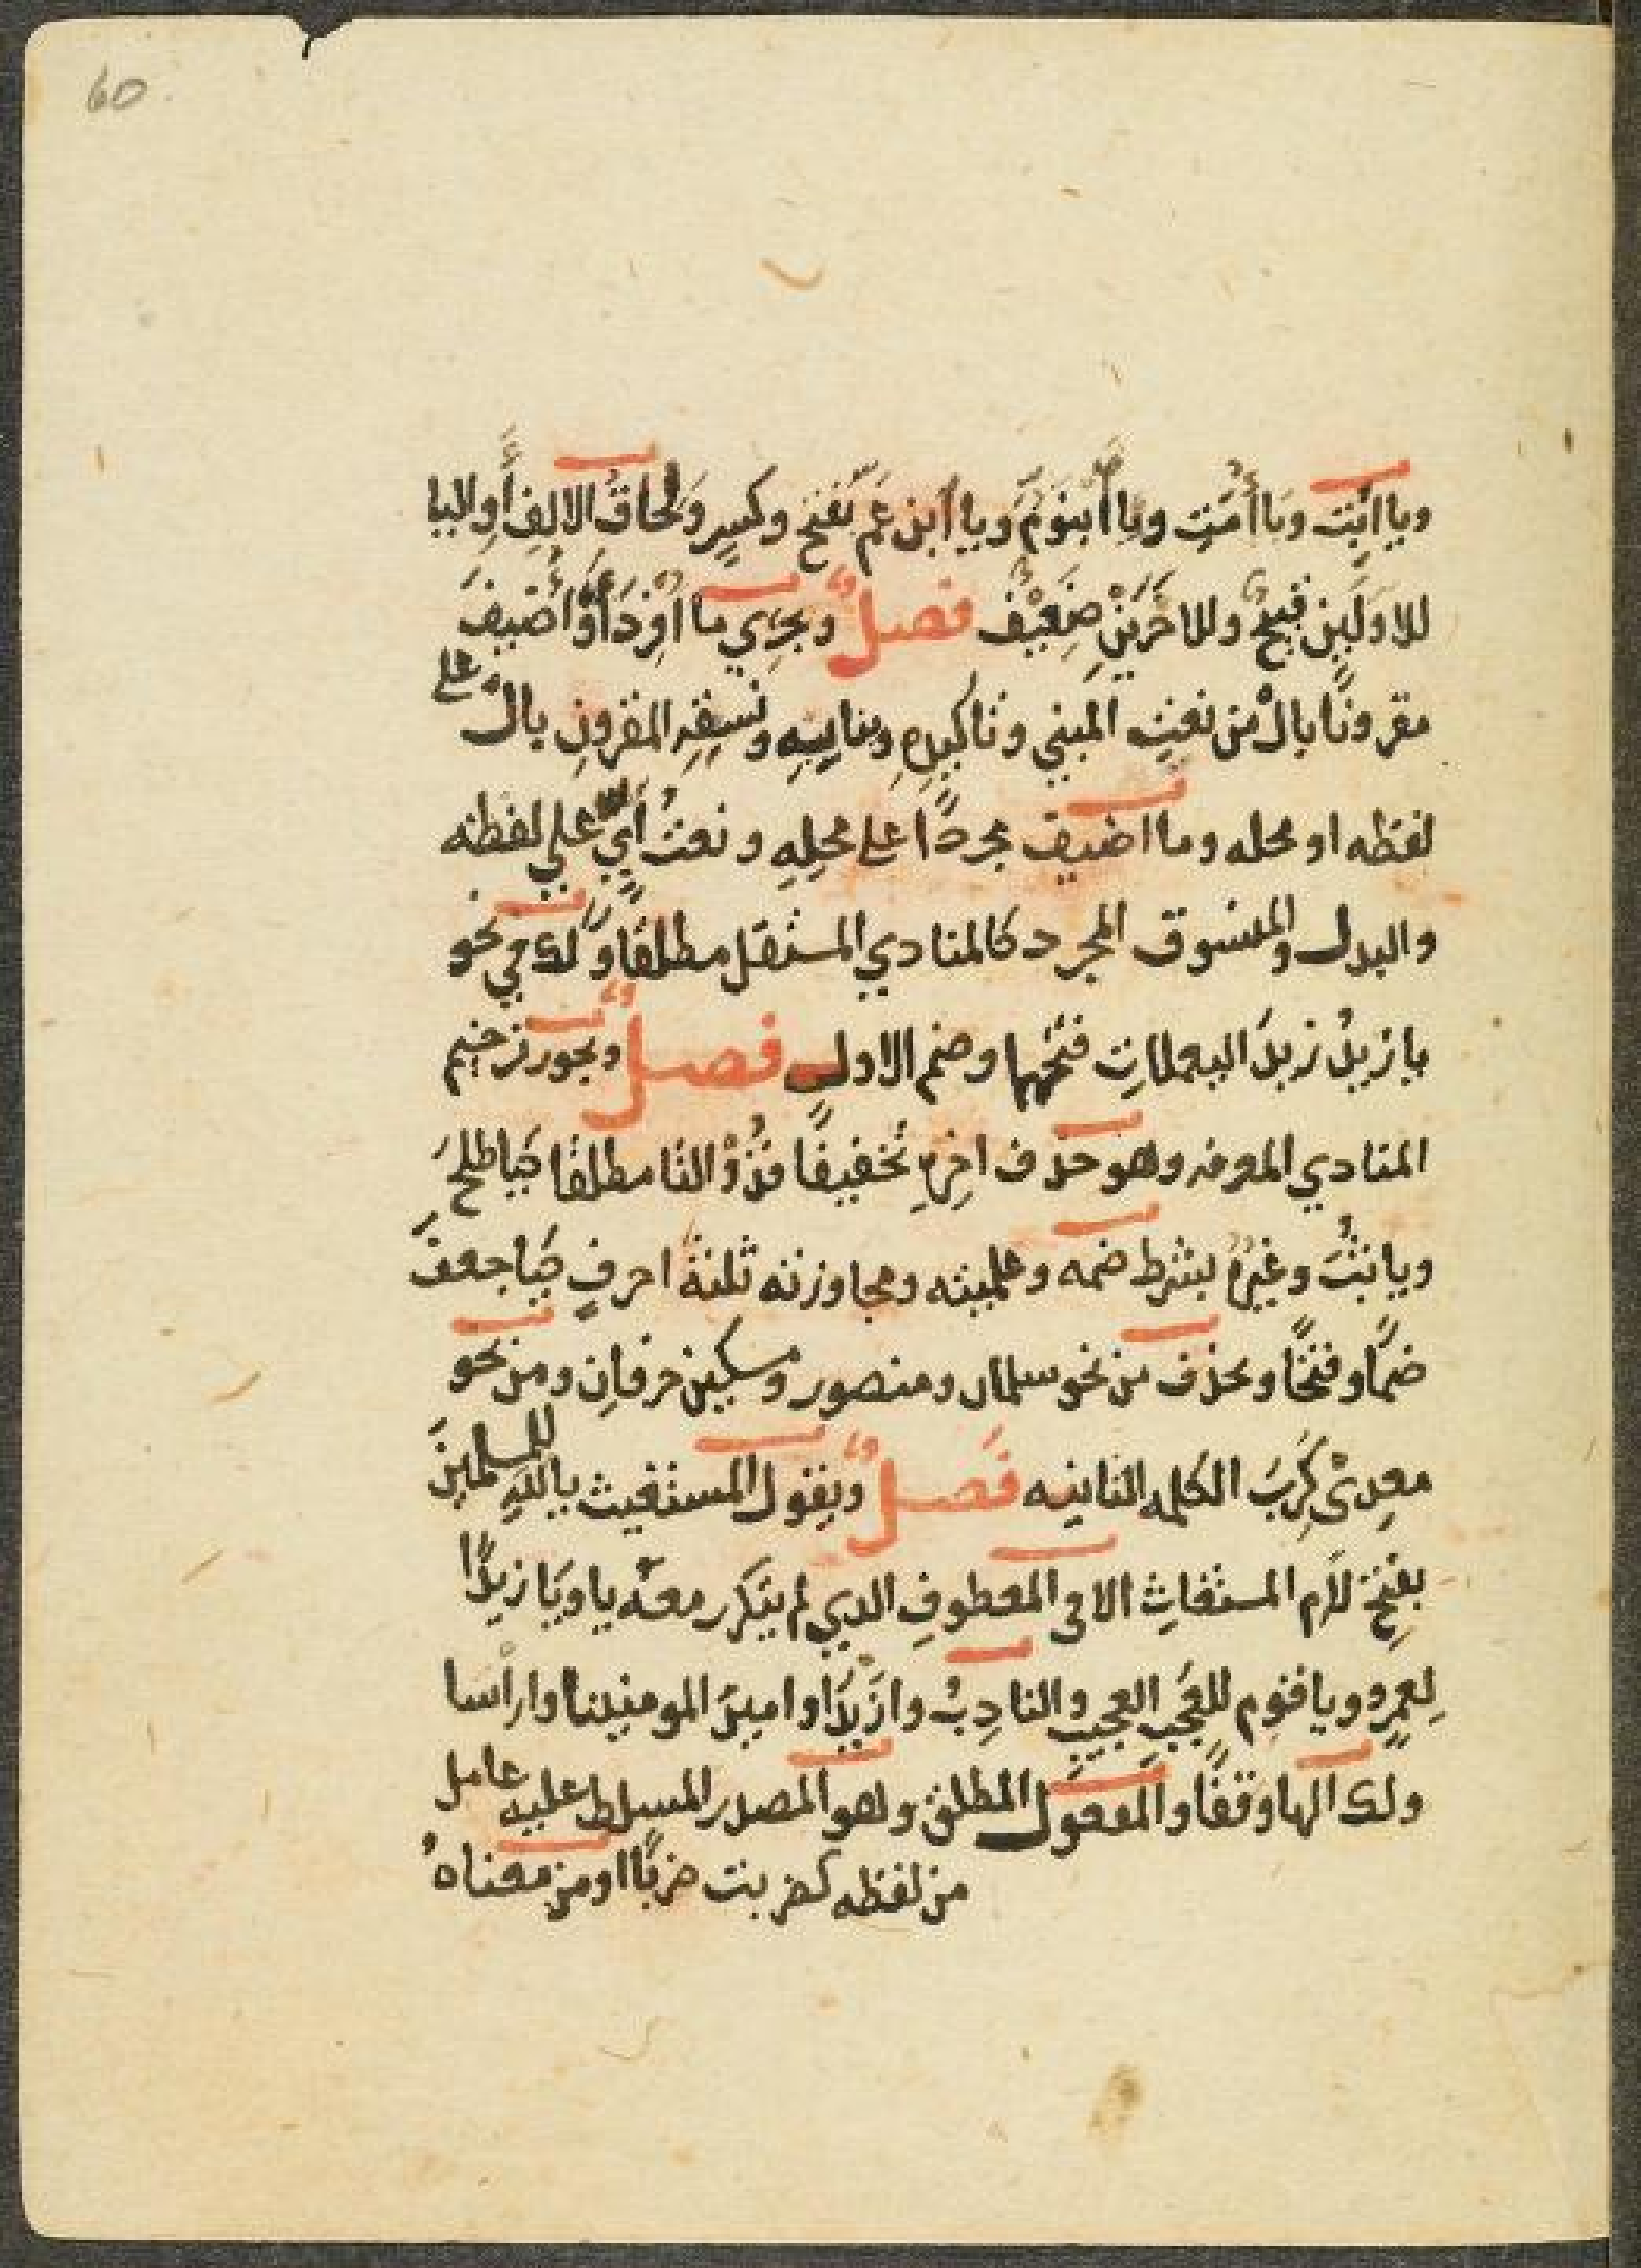 60
ويا ابت ويا امت ويا ابنوم ويا ابن عم بفتح وكسر ولحاق الالف او اليا
للاولين قبيح وللاخرين ضعيف فصل ويجري ما افرد او اضيف
مقرونا بال من نعت المبني وتاكيده وبيانه ونسقه المقرون بال على
لفظه او محله وما اضيف مجردا على محله ونعت اي على لفظه
والبدل والمنسوق المجرد كالمنادي المستقل مطلقا ولك في نحو
يا زيد زيد اليعملات فتحهما وضم الاول فصل ويجوز ترخيم
المنادي المعرفه وهو حذف اخره تخفيفا فذو التا مطلقا كيا طلح
ويا ثب وغيره بشرط ضمه وعلميته ومجاوزته ثلثة احرف كيا جعف
ضما وفتحا ويحذف من نحو سلمان ومنصور ومسكين حرفان ومن نحو
معدى كرب الكلمه الثانيه فصل ويقول المستغيث يالله للمسلمين
بفتح لام المستغاث الا في المعطوف الذي لم يتكرر معه يا ويا زيدا
لعمرو ويا قوم للعجب العجيب والنادب وازيدا وا امير المومنينا وا راسا
ولك الها وقفا والمفعول المطلق وهو المصدر المسلط عليه عامل
من لفظه كضربت ضربا او من معناه